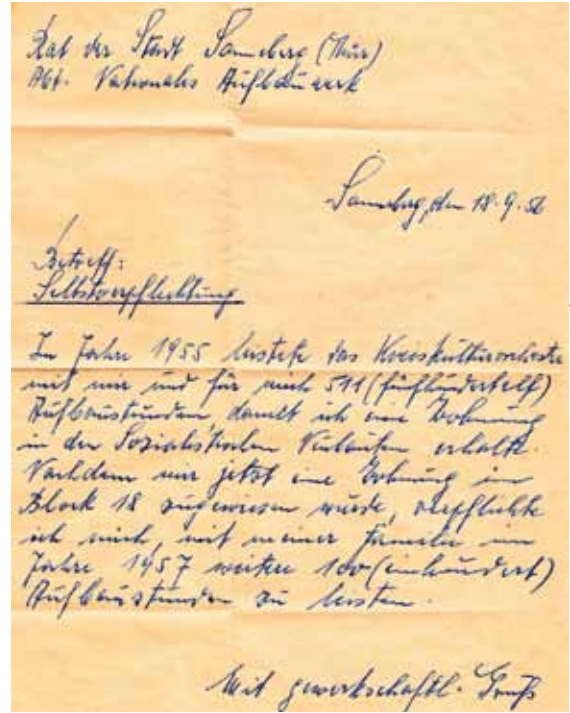 Rat der Stadt Sonneberg (Thür)
Abt. Nationales Aufbauwerk
Sonneberg, den 18.9.56
Betreff:
Selbstverpflichtung
Im Jahre 1955 leistete das Kreiskulturorchester
mit mir und für mich 511 (fünfhundertelf)
Aufbaustunden damit ich eine Wohnung
in den Sozialistischen erhalte.
Nachdem mir jetzt eine Wohnung im
Block 18 zugewiesen wurde, verpflichte
ich mich, mit meiner Familie im
Jahre 1957 weitere 100 (einhundert)
Aufbaustunden zu leisten.
Mit gewerkschaftl. Gruß